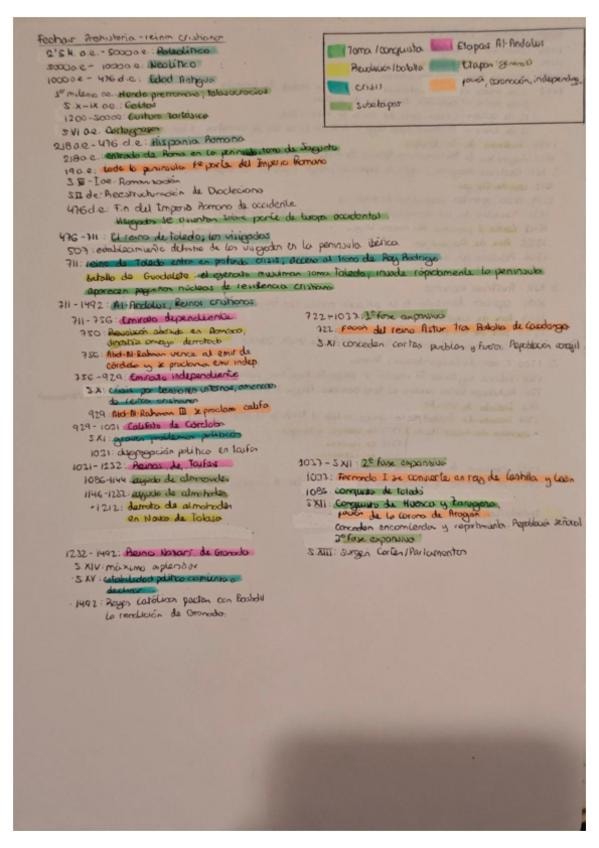 Fechas Prehistoria - reinos cristianos
Toma/conquista
Etapas Al-Andalus
Revolución/batalla
Etapas
crisis
coronación, independ
subetapas
a.c. - 5000 a.c: Paleolítico
5000 a.c - 1000 a.c: Neolítico
1000 a.c - 476 d.c: Edad Antigua
1º milenio a.c. Mundo prerromano, colonizaciones
S. X-IX a.c: Celtas
1200-500 a.c: Cultura tartésica
S VI a.c. Cartagineses
218 a.c - 476 d.c: Hispania Romana
218 a.c: entrada de Roma en la península, toma de Sagunto
19 a.c: toda la península fo parte del Imperio Romano
S III - I a.c: Romanización
S III d.c: Reestructuración de Diocleciano
476 d.c: Fin del Imperio Romano de occidente
Visigodos se asientan sobre parte de Europa occidental
476 - 711: El reino de Toledo; los visigodos
507: establecimiento definit. de los visigodos en la península ibérica
711: reino de Toledo entra en profunda crisis, acceso al trono de Rey Rodrigo
Batalla de Guadalete: el ejército musulmán toma Toledo, invade rápidamente la península
aparecen pequeños núcleos de resistencia cristiana
711-1492: Al-Andalus, Reinos cristianos
711-756: Emirato dependiente
750: Revolución abasida en Damasco,
dinastía omeya derrotada
756: Abd-Al-Rahman vence al emir de
córdoba y se proclama emir indep.
756-929: Emirato independiente
S.X: crisis por tensiones internas, amenaza
de reinos cristianos
929: Abd-Al-Rahman III se proclama califa
929-1031: Califato de Córdoba
S.XI: graves problemas políticos
1031: disgregación política en taifas
1031-1232: Reinos de Taifas
1086-1144: llegada de almorávides
1146-1232: llegada de almohades
-1212: derrota de almohades
en Navas de Tolosa
1232-1492: Reino Nazarí de Granada
S. XIV: máximo esplendor
S. XV: estabilidad política comienza a
declinar
1492: Reyes Católicos pactan con Boabdil
la rendición de Granada.
722-1037: 1ª fase expansiva
722: Favor del reino Astur tras Batalla de Covadonga
S. XI: conceden cartas pueblas y fueros. Repoblación concejil
1037 - S XII: 2ª fase expansiva
1037: Fernando I se convierte en rey de Castilla y León
1085: conquista de Toledo
S XII: Conquista de Huesca y Zaragoza,
de la Corona de Aragón
Conceden encomienda y repartimento. Repoblación señorial
2ª fase expansiva
S. XIII: surgen Cortes/Parlamentos